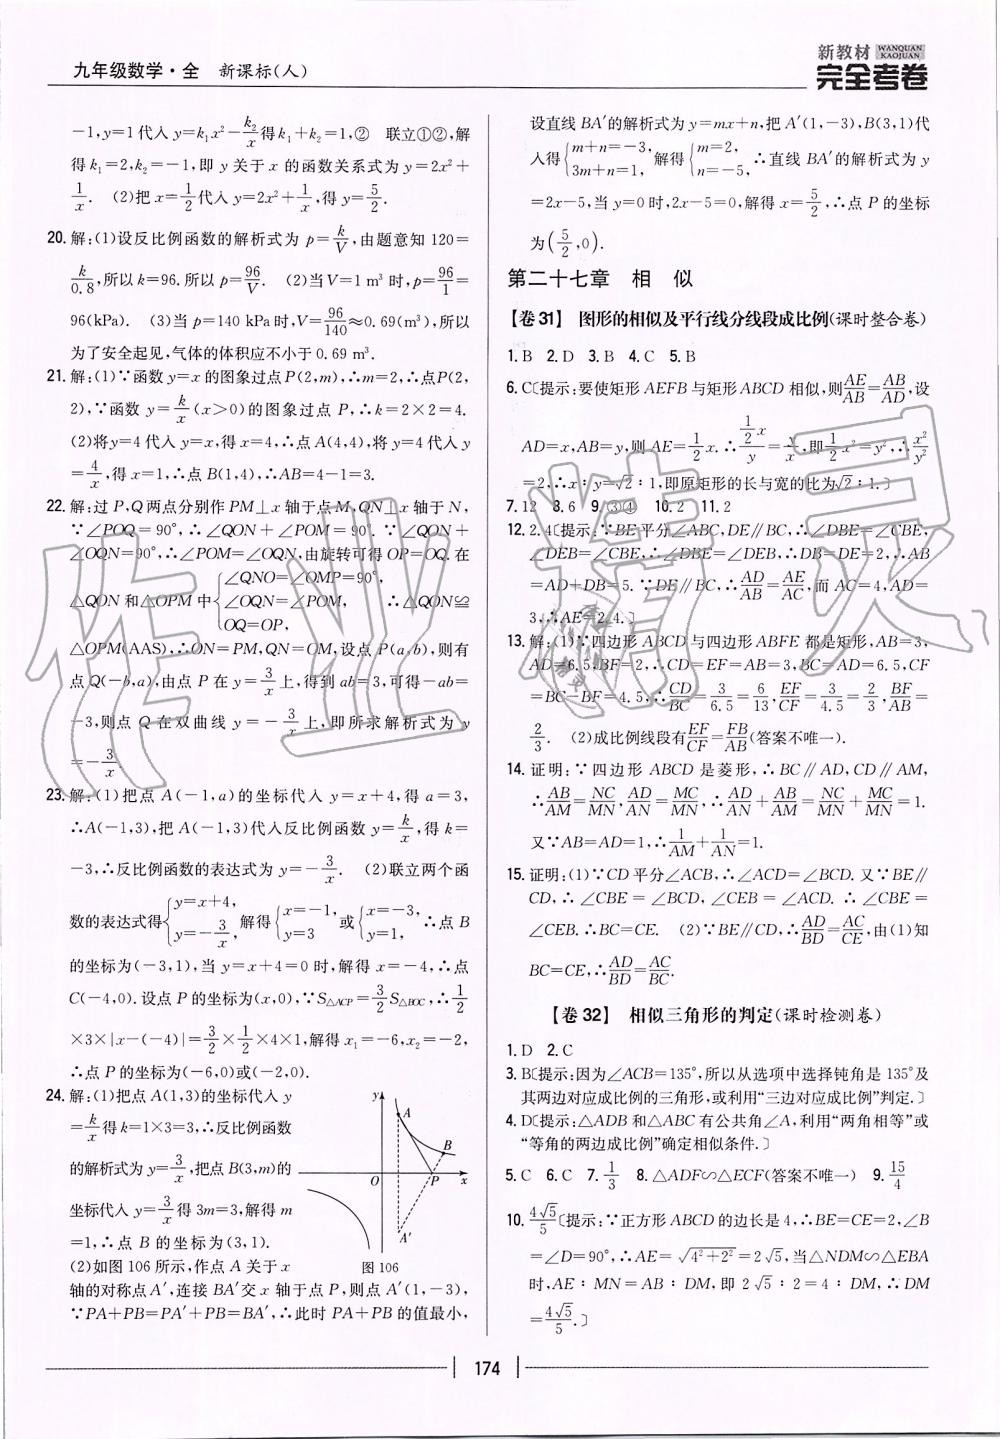 九年级数学·全 新课标(人)
新教材 WANQUAN KAOJUAN
完全考卷
-1,y=1代入y=k₁x²-k₂/x得k₁+k₂=1,② 联立①②,解
得k₁=2,k₂=-1,即y关于x的函数关系式为y=2x²+
1/x. (2)把x=1/2代入y=2x²+1/x,得y=5/2.
20.解:(1)设反比例函数的解析式为p=k/V,由题意知120=
k/0.8,所以k=96.所以p=96/V. (2)当V=1 m³时,p=96/1=
96(kPa). (3)当p=140 kPa时,V=96/140≈0.69(m³),所以
为了安全起见,气体的体积应不小于0.69 m³.
21.解:(1)∵函数y=x的图象过点P(2,m),∴m=2,∴点P(2,
2),∵函数y=k/x(x>0)的图象过点P,∴k=2×2=4.
(2)将y=4代入y=x,得x=4,∴点A(4,4),将y=4代入y
=4/x,得x=1,∴点B(1,4),∴AB=4-1=3.
22.解:过P,Q两点分别作PM⊥x轴于点M,QN⊥x轴于N,
∵∠POQ=90°,∴∠QON+∠POM=90°. ∵∠QON+
∠OQN=90°,∴∠POM=∠OQN,由旋转可得OP=OQ.在
△QON和△OPM中{∠QNO=∠OMP=90°, ∠OQN=∠POM, OQ=OP, ∴△QON≌
△OPM(AAS),∴ON=PM,QN=OM,设点P(a,b),则有
点Q(-b,a),由点P在y=3/x上,得到ab=3,可得-ab=
-3,则点Q在双曲线y=-3/x上,即所求解析式为y
=-3/x.
23.解:(1)把点A(-1,a)的坐标代入y=x+4,得a=3,
∴A(-1,3),把A(-1,3)代入反比例函数y=k/x,得k=
-3,∴反比例函数的表达式为y=-3/x. (2)联立两个函
数的表达式得{y=x+4, y=-3/x, 解得{x=-1, y=3 或{x=-3, y=1, ∴点B
的坐标为(-3,1),当y=x+4=0时,解得x=-4,∴点
C(-4,0).设点P的坐标为(x,0),∵S△ACP=3/2 S△BOC,∴1/2
×3×|x-(-4)|=3/2×1/2×4×1,解得x₁=-6,x₂=-2,
∴点P的坐标为(-6,0)或(-2,0).
24.解:(1)把点A(1,3)的坐标代入y
=k/x得k=1×3=3,∴反比例函数
的解析式为y=3/x,把点B(3,m)的
坐标代入y=3/x得3m=3,解得m
=1,∴点B的坐标为(3,1).
(2)如图106所示,作点A关于x
轴的对称点A′,连接BA′交x轴于点P,则点A′(1,-3),
∵PA+PB=PA′+PB=BA′,∴此时PA+PB的值最小,
y
A
B
O
P
x
A′
图106
设直线BA′的解析式为y=mx+n,把A′(1,-3),B(3,1)代
入得{m+n=-3, 3m+n=1, 解得{m=2, n=-5, ∴直线BA′的解析式为y
=2x-5,当y=0时,2x-5=0,解得x=5/2,∴点P的坐标
为(5/2,0).
第二十七章 相 似
【卷31】 图形的相似及平行线分线段成比例(课时整合卷)
1.B 2.D 3.B 4.C 5.B
6.C〔提示:要使矩形AEFB与矩形ABCD相似,则AE/AB=AB/AD,设
AD=x,AB=y,则AE=1/2x,∴(1/2x)/y=y/x,即1/2x²=y²,∴x²/y²
=2,∴x∶y=√2∶1,即原矩形的长与宽的比为√2∶1.〕
7.12 8.6 9.③④ 10.2 11.2
12.2.4〔提示:∵BE平分∠ABC,DE∥BC,∴∠DBE=∠CBE,
∠DEB=∠CBE,∴∠DBE=∠DEB,∴DB=DE=2,∴AB
=AD+DB=5.∵DE∥BC,∴AD/AB=AE/AC,而AC=4,AD=
3,∴AE=2.4.〕
13.解:(1)∵四边形ABCD与四边形ABFE都是矩形,AB=3,
AD=6.5,BF=2,∴CD=EF=AB=3,BC=AD=6.5,CF
=BC-BF=4.5,∴CD/BC=3/6.5=6/13,EF/CF=3/4.5=2/3,BF/AB=
2/3. (2)成比例线段有EF/CF=FB/AB(答案不唯一).
14.证明:∵四边形ABCD是菱形,∴BC∥AD,CD∥AM,
∴AB/AM=NC/MN,AD/AN=MC/MN,∴AD/AN+AB/AM=NC/MN+MC/MN=1.
又∵AB=AD=1,∴1/AM+1/AN=1.
15.证明:(1)∵CD平分∠ACB,∴∠ACD=∠BCD.又∵BE∥
CD,∴∠CBE=∠BCD,∠CEB=∠ACD.∴∠CBE=
∠CEB.∴BC=CE. (2)∵BE∥CD,∴AD/BD=AC/CE,由(1)知
BC=CE,∴AD/BD=AC/BC.
【卷32】 相似三角形的判定(课时检测卷)
1.D 2.C
3.B〔提示:因为∠ACB=135°,所以从选项中选择钝角是135°及
其两边对应成比例的三角形,或利用“三边对应成比例”判定.〕
4.D〔提示:△ADB和△ABC有公共角∠A,利用“两角相等”或
“等角的两边成比例”确定相似条件.〕
5.C 6.C 7.1/3 8.△ADF∽△ECF(答案不唯一) 9.15/4
10.4√5/5〔提示:∵正方形ABCD的边长是4,∴BE=CE=2,∠B
=∠D=90°,∴AE=√4²+2²=2√5,当△NDM∽△EBA
时,AE∶MN=AB∶DM,即2√5∶2=4∶DM,∴DM
=4√5/5.〕
174
作业精灵